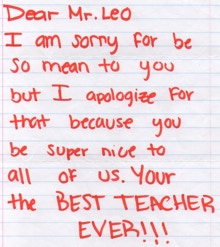 Dear Mr. Leo
I am sorry for be
so mean to you
but I apologize for
that because you
be super nice to
all of us. Your
the BEST TEACHER
EVER!!!